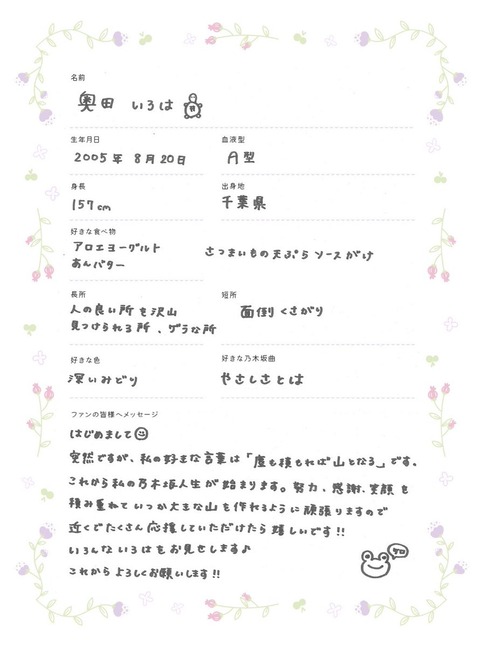 名前
奥田 いろは
生年月日
2005年 8月20日
血液型
A型
身長
157cm
出身地
千葉県
好きな食べ物
アロエヨーグルト
あんバター
さつまいもの天ぷら ソースがけ
長所
人の良い所を沢山
見つけられる所、ゲラな所
短所
面倒くさがり
好きな色
深いみどり
好きな乃木坂曲
やさしさとは
ファンの皆様へメッセージ
はじめまして
突然ですが、私の好きな言葉は「塵も積もれば山となる」です。
これから私の乃木坂人生が始まります。努力、感謝、笑顔を
積み重ねていつか大きな山を作れるように頑張りますので
近くでたくさん応援していただけたら嬉しいです!!
いろんないろはをお見せします♪
これからよろしくお願いします!!
ケロ